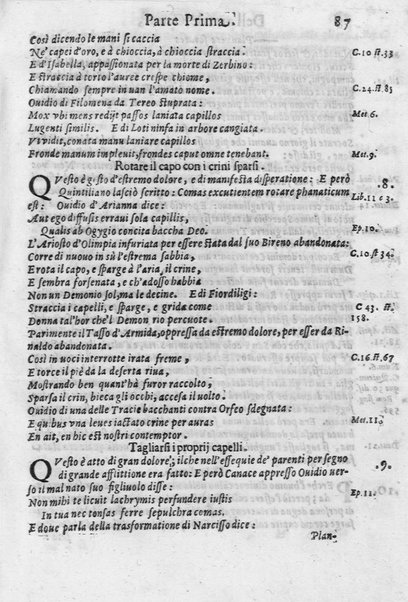 Parte Prima. 87
Così dicendo le mani si caccia
Ne' capei d'oro, e à chioccia, à chioccia straccia. C.10 st.33.
E d'Isabella, appassionata per la morte di Zerbino:
E straccià à torto l'auree crespe chiome,
Chiamando sempre in uan l'amato nome. C.24.st.83
Ouidio di Filomena da Tereo stuprata:
Mox vbi mens redijt passos laniata capillos Met.6.
Lugenti similis. E di Loti ninfa in arbore cangiata.
Vt vidit, conata manu laniare capillos
Fronde manum impleuit, frondes caput omne tenebant. Met.9.
Rotare il capo con i crini sparsi.
QVesto è gesto d'estremo dolore, e di manifesta disperatione: E però .8.
Quintiliano lasciò scritto: Comas excutientem rotare phanaticum Lib.11 c 3.
est: Ouidio d'Arianna dice:
Aut ego diffusis erraui sola capillis,
Qualis ab Ogygio concita baccha Deo. Ep.10.
L'Ariosto d'Olimpia infuriata per essere stata dal suo Bireno abandonata:
Corre di nuouo in sù l'estrema sabbia, C.10 st 34.
E rota il capo, e sparge à l'aria, il crine,
E sembra forsenata, e ch'adosso habbia
Non un Demonio sol, ma le decine. E di Fiordiligi:
Straccia i capelli, e sparge, e grida come C 43. st.
Donna talhor che'l Demon rio percuote. 158.
Parimente il Tasso d'Armida, oppressa da estremo dolore, per esser da Rinaldo
naldo abandonata. C.16.st.67
Così in uoci interrotte irata freme,
E torce il piè da la deserta riua,
Mostrando ben quant'hà furor raccolto,
Sparsa il crin, bieca gli occhi, accesa il uolto.
Ouidio di una delle Tracie bacchanti contra Orfeo sdegnata:
E quibus vna leues iactato crine per auras Met.11.
En ait, en hic est nostri contemptor.
Tagliarsi i proprij capelli.
QVesto è atto di gran dolore, il che nell'essequie de' parenti per segno .9.
di grande afflittione era fatto: E però Canace appresso Ouidio uerso
so il mal nato suo figliuolo disse: Ep.11.
Non mihi te licuit lachrymis perfundere iustis
In tua nec tonsas ferre sepulchra comas.
E doue parla della trasformatione di Narcisso dice:
Plan-